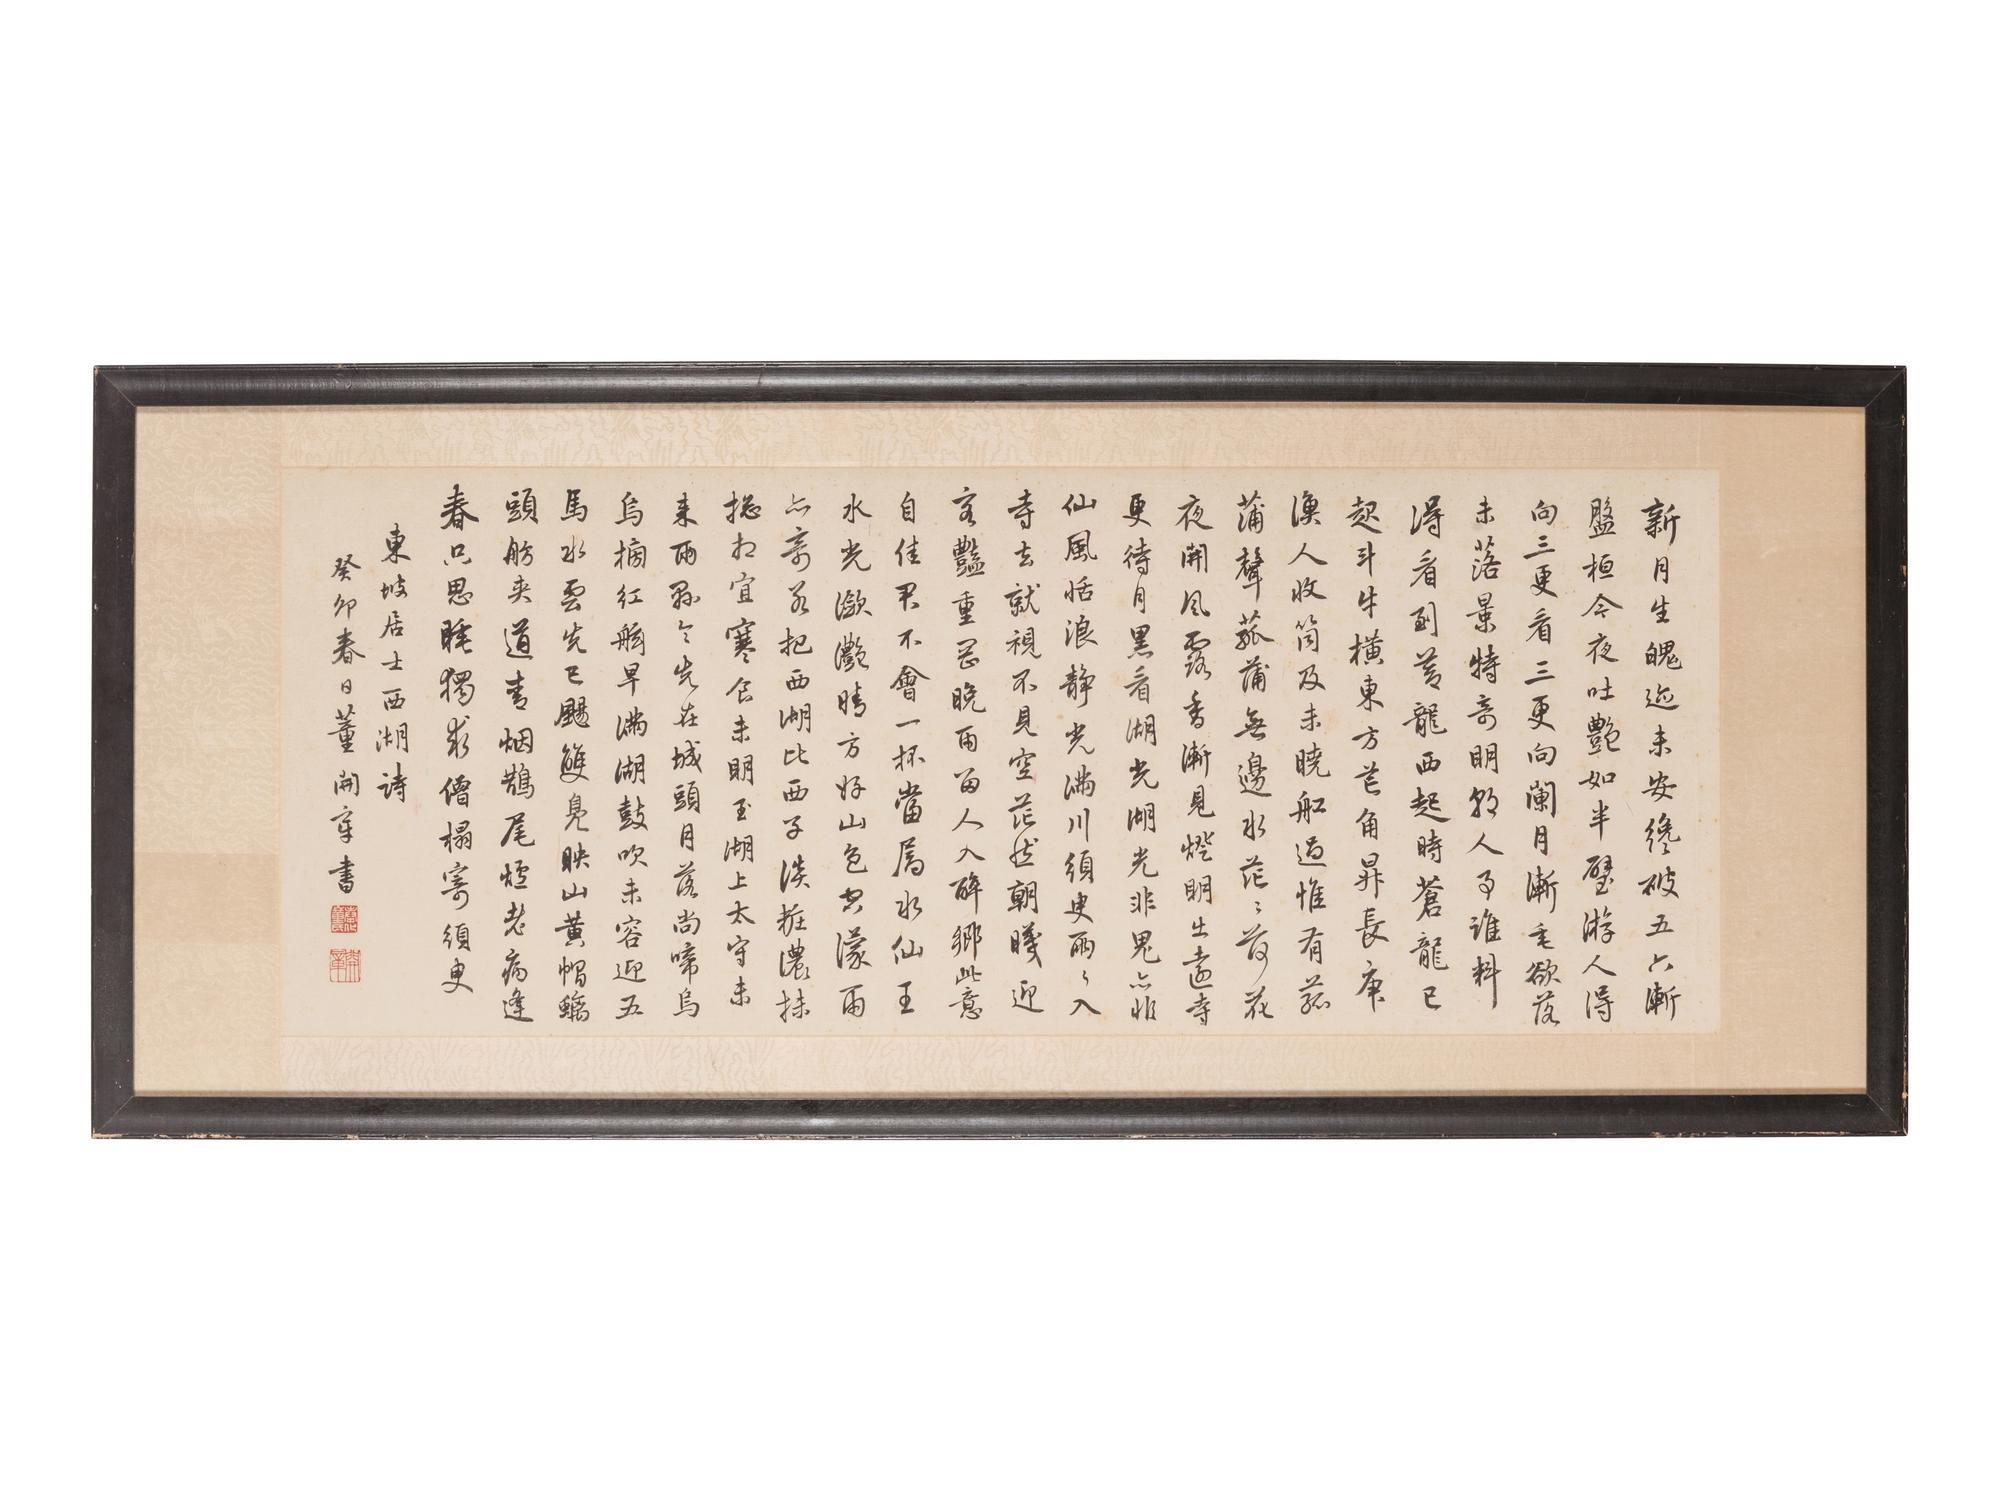 新月生魄迹未安纔破五六漸
盤桓今夜吐艷如半璧游人得
向三更看三更向闌月漸垂欲落
未落景特奇明朝人事誰料
得看到蒼龍西起時蒼龍已
起斗牛橫東方芒角昇長庚
漁人收筒及未曉船過惟有菰
蒲聲菰蒲無邊水茫〻荷花
夜開風露香漸見燈明出遠寺
更待月黑看湖光湖光非鬼亦非
仙風恬浪靜光滿川須臾兩〻入
寺去就視不見空茫然朝曦迎
客豔重岡晚雨留人入醉鄉此意
自佳君不會一杯當屬水仙王
水光瀲灧晴方好山色空濛雨
亦奇若把西湖比西子淡粧濃抹
揔相宜寒食未明至湖上太守未
来兩縣令先在城頭月落尚啼烏
烏榜紅舷早滿湖鼓吹未容迎五
馬水雲先已颺雙鳧映山黃帽螭
頭舫夾道青烟鵲尾爐老病逢
春只思睡獨求僧榻寄須臾
東坡居士西湖詩
癸卯春日董開章書